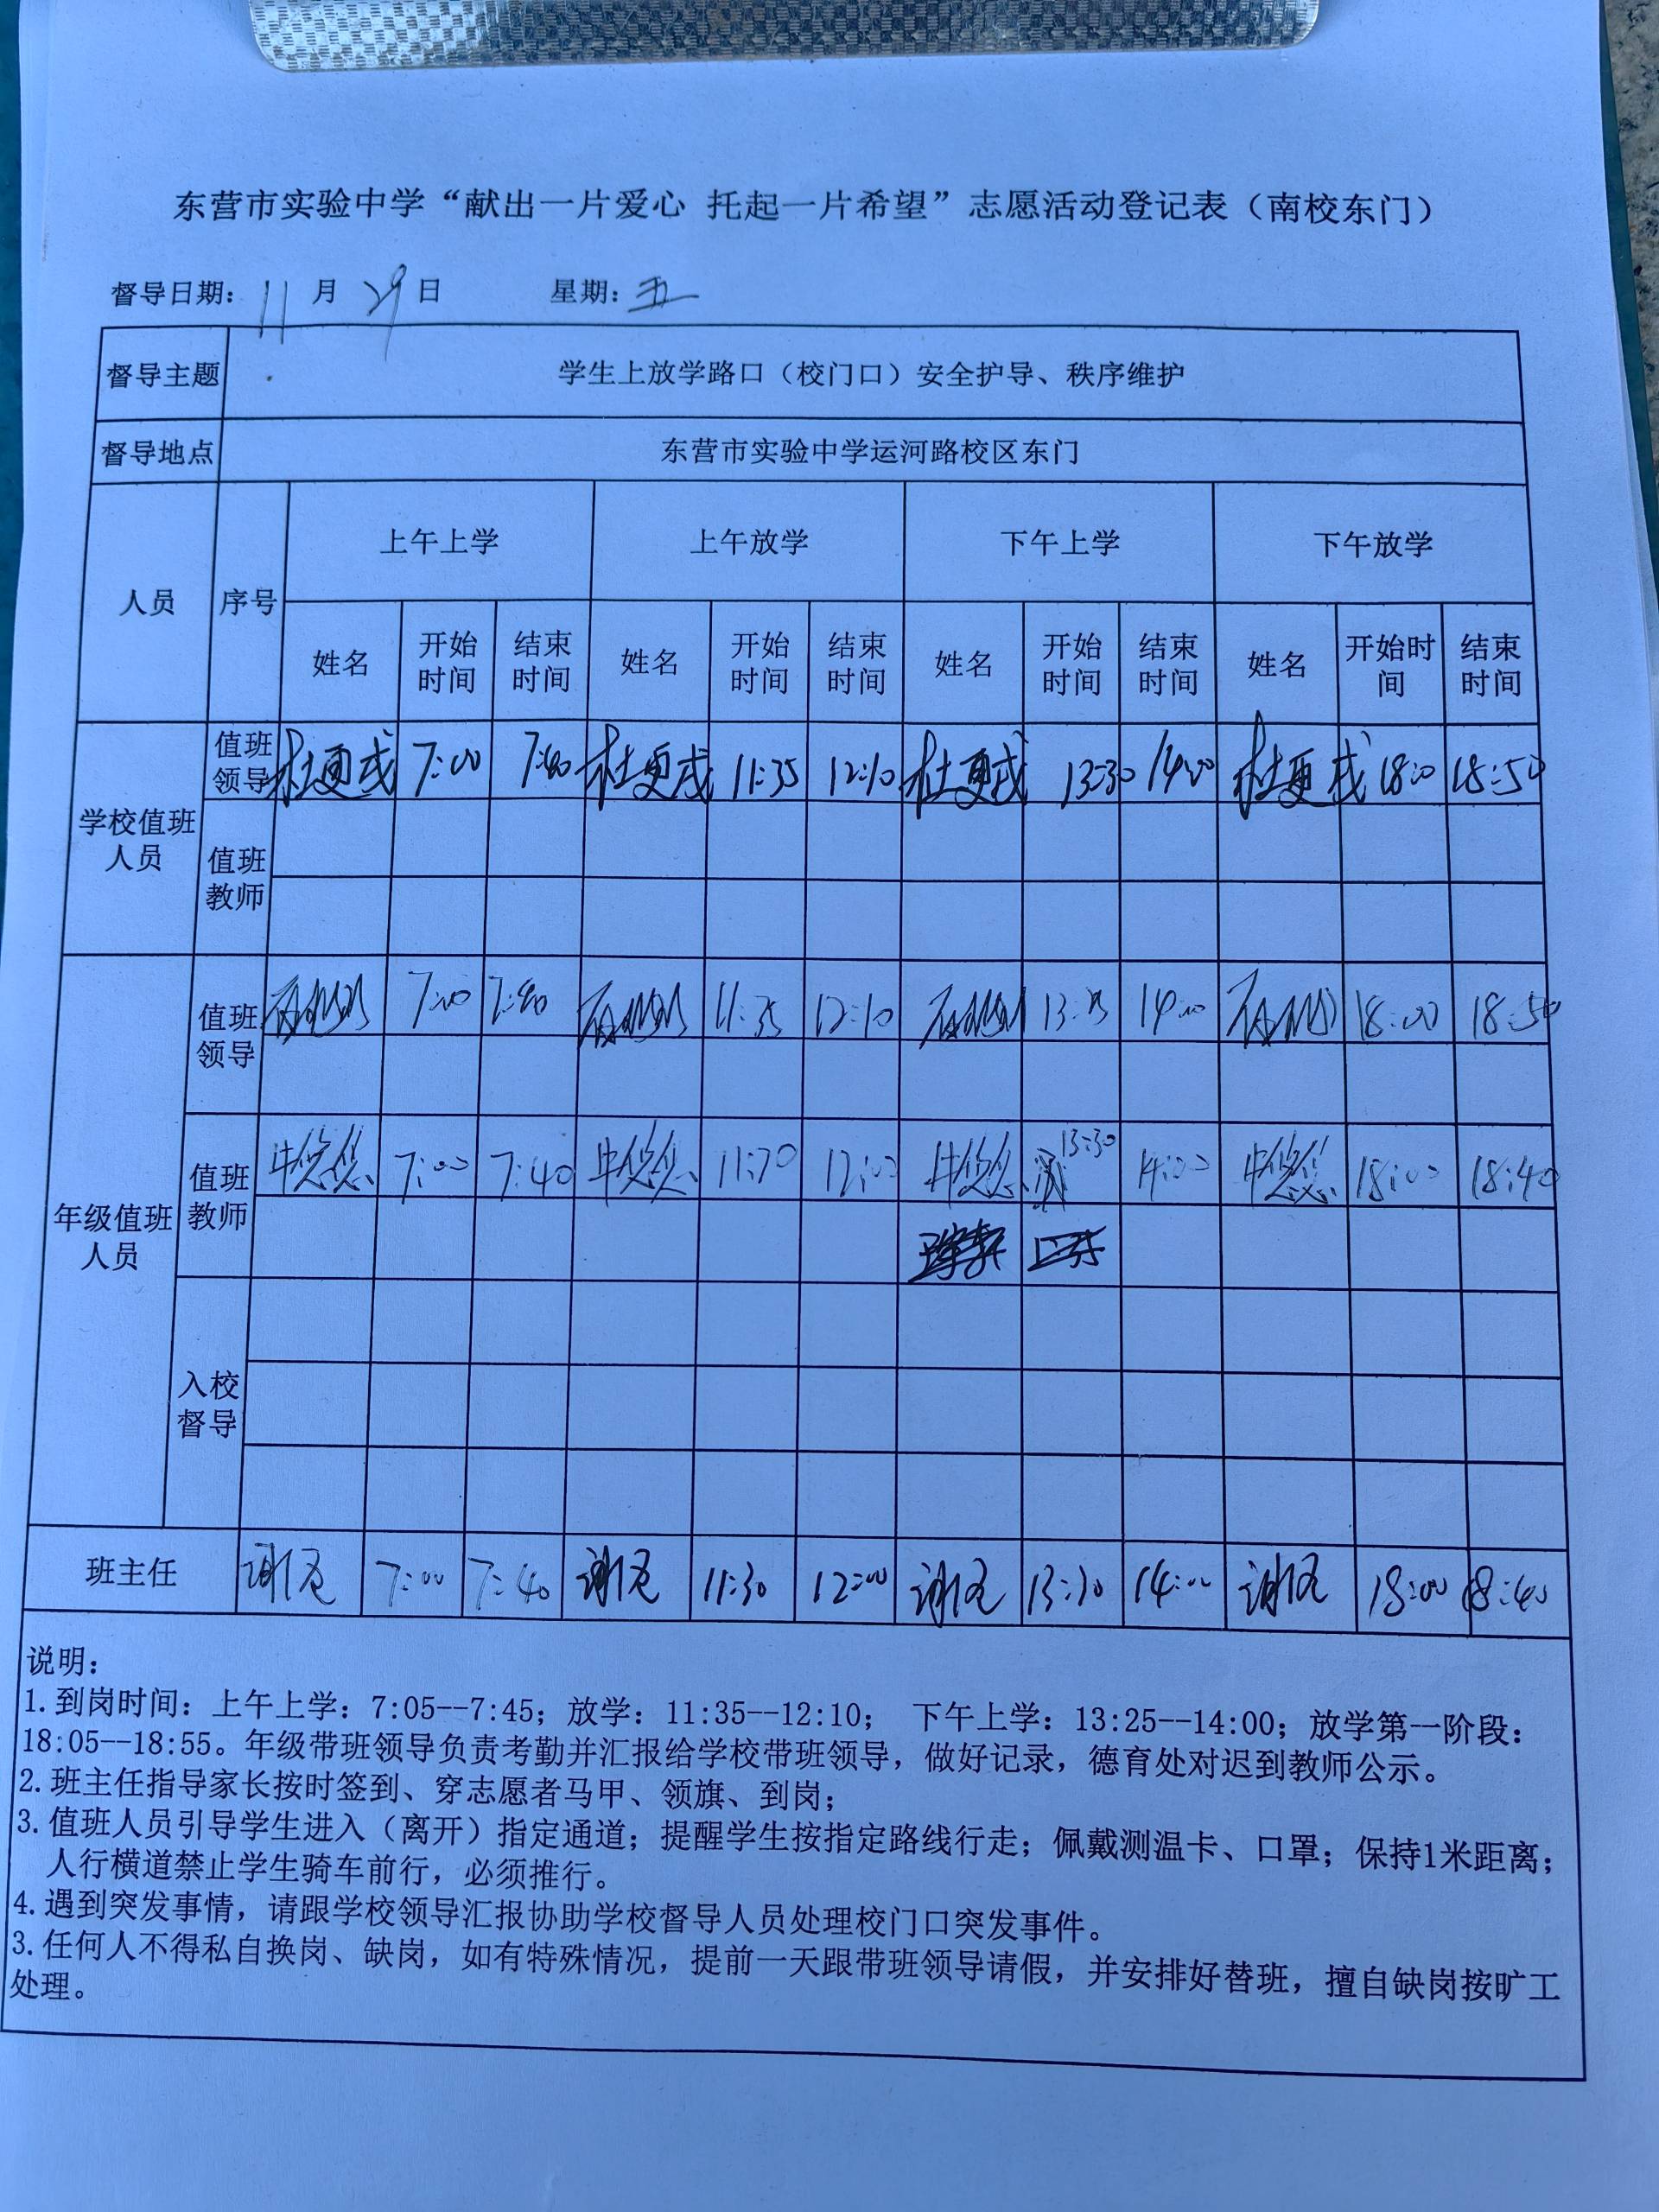 东营市实验中学“献出一片爱心 托起一片希望”志愿活动登记表（南校东门）
督导日期： 11 月 29 日 星期：五
督导主题 学生上放学路口（校门口）安全护导、秩序维护
督导地点 东营市实验中学运河路校区东门
人员 序号 上午上学 上午放学 下午上学 下午放学
姓名 开始时间 结束时间 姓名 开始时间 结束时间 姓名 开始时间 结束时间 姓名 开始时间 结束时间
学校值班人员 值班领导 杜更成 7:00 7:40 杜更成 11:35 12:10 杜更成 13:30 14:00 杜更成 18:00 18:50
值班教师
年级值班人员 值班领导 7:00 7:40 11:35 12:10 14:00 18:00 18:50
值班教师 牛悠悠 7:00 7:40 牛悠悠 12:00 牛悠悠 13:30 14:00 牛悠悠 18:00 18:40
入校督导
班主任 7:00 7:40 11:30 12:00 13:30 14:00 18:00 18:40
说明：
1.到岗时间：上午上学：7:05--7:45；放学：11:35--12:10； 下午上学：13:25--14:00；放学第一阶段：
18:05--18:55。年级带班领导负责考勤并汇报给学校带班领导，做好记录，德育处对迟到教师公示。
2.班主任指导家长按时签到、穿志愿者马甲、领旗、到岗；
3.值班人员引导学生进入（离开）指定通道；提醒学生按指定路线行走；佩戴测温卡、口罩；保持1米距离；
人行横道禁止学生骑车前行，必须推行。
4.遇到突发事情，请跟学校领导汇报协助学校督导人员处理校门口突发事件。
3.任何人不得私自换岗、缺岗，如有特殊情况，提前一天跟带班领导请假，并安排好替班，擅自缺岗按旷工
处理。